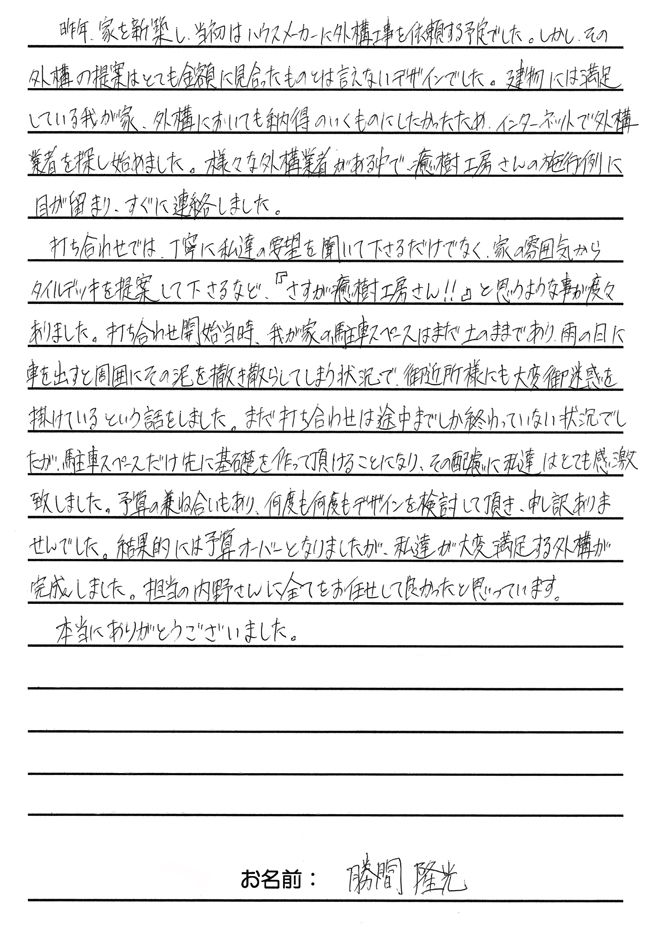 昨年、家を新築し、当初はハウスメーカーに外構工事を依頼する予定でした。しかし、その
外構の提案はとても金額に見合ったものとは言えないデザインでした。建物には満足
している我が家、外構においても納得のいくものにしたかったため、インターネットで外構
業者を探し始めました。様々な外構業者がある中で、癒樹工房さんの施行例に
目が留まり、すぐに連絡しました。
打ち合わせでは、丁寧に私達の要望を聞いて下さるだけでなく、家の雰囲気から
タイルデッキを提案して下さるなど、『さすが癒樹工房さん!!』と思うような事が度々
ありました。打ち合わせ開始当時、我が家の駐車スペースはまだ土のままであり、雨の日に
車を出すと周囲にその泥を撒き散らしてしまう状況で、御近所様にも大変御迷惑を
掛けているという話をしました。まだ打ち合わせは途中までしか終わっていない状況でし
たが、駐車スペースだけ先に基礎を作って頂けることになり、その配慮に私達はとても感激
致しました。予算の兼ね合いもあり、何度も何度もデザインを検討して頂き、申し訳ありま
せんでした。結果的には予算オーバーとなりましたが、私達が大変満足する外構が
完成しました。担当の内野さんに全てをお任せして良かったと思っています。
本当にありがとうございました。
お名前： 勝間 隆光